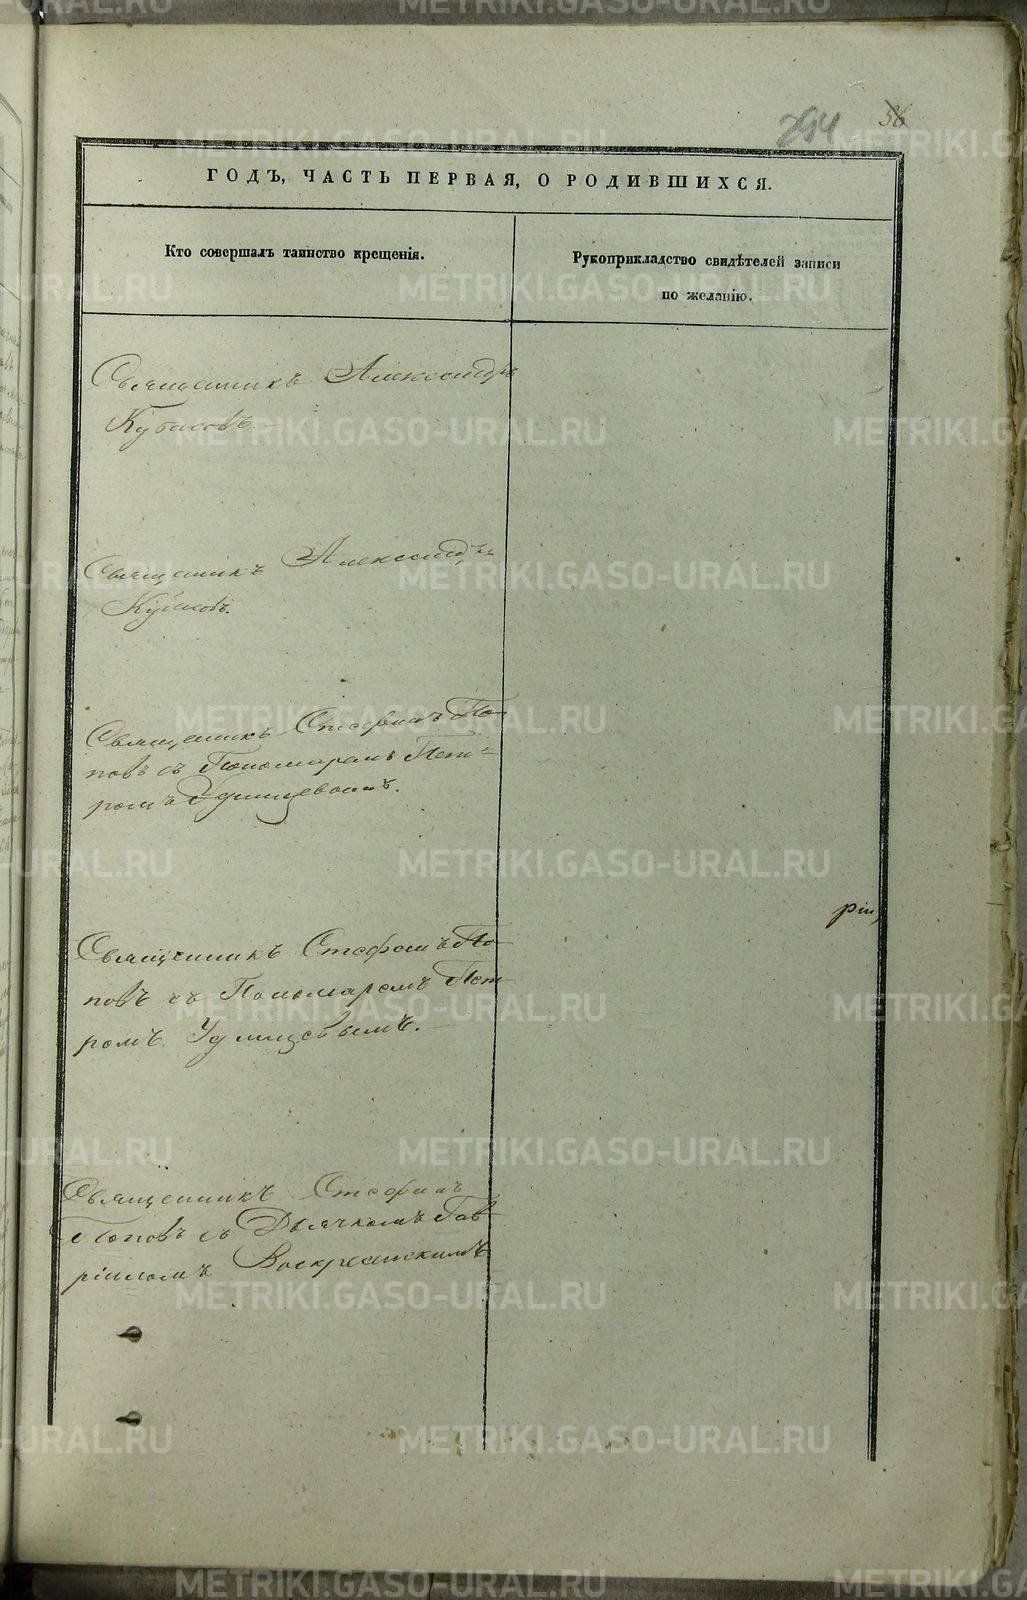 294 56
ГОДЪ, ЧАСТЬ ПЕРВАЯ, О РОДИВШИХСЯ.
Кто совершалъ таинство крещенія.
Рукоприкладство свидѣтелей записи
по желанію.
Священникъ Александръ
Кубасовъ.
Священникъ Александръ
Кубасовъ.
Священникъ Стефанъ По-
повъ съ Пономаремъ Пет-
ромъ Удинцевымъ.
ріи
Священникъ Стефанъ По-
повъ съ Пономаремъ Пет
ромъ Удинцевымъ.
Священникъ Стефанъ
Поповъ съ Дьячкомъ Гав
ріиломъ Воскресенскимъ
METRIKI.GASO-URAL.RU